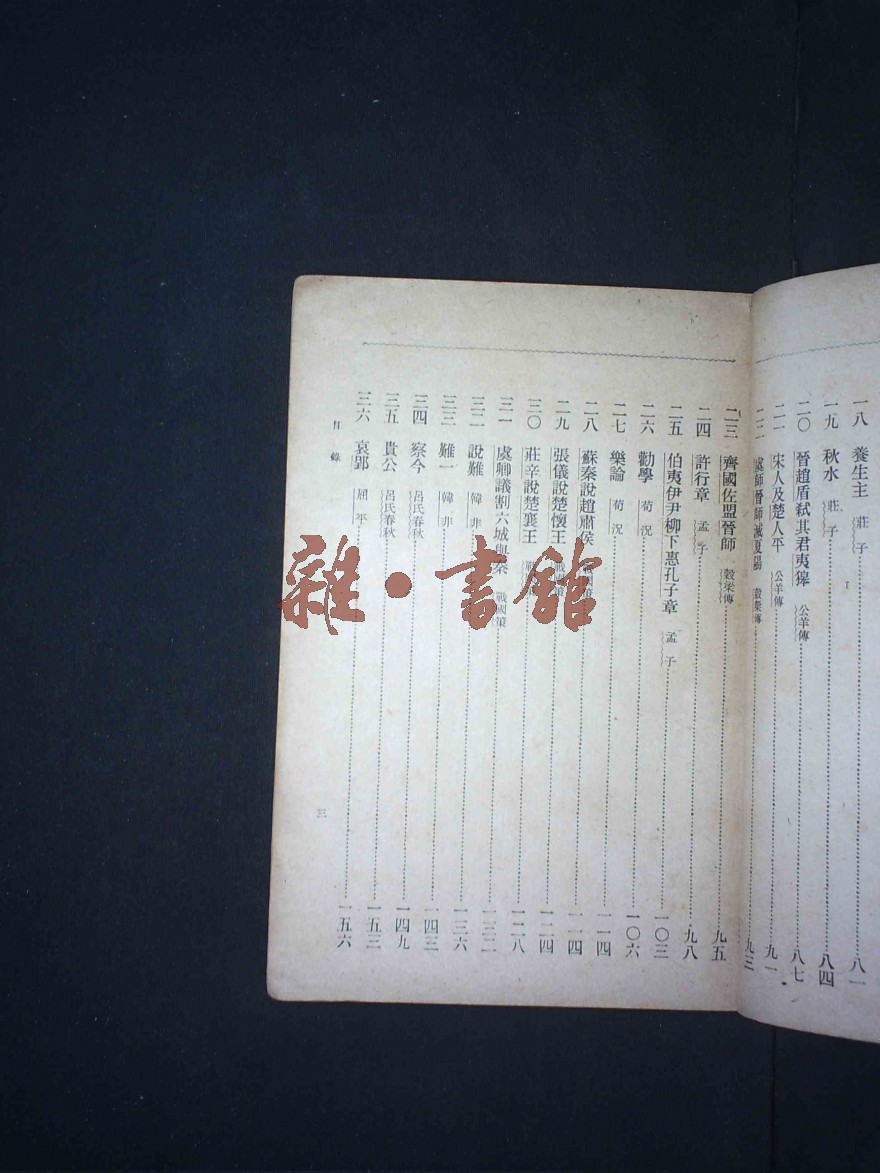 一八 養生主 莊子 八一
一九 秋水 莊子 八四
二〇 晉趙盾弑其君夷獋 公羊傳 八七
二一 宋人及楚人平 公羊傳 九一
二二 虞師晉師滅夏陽 穀梁傳 九三
二三 齊國佐盟晉師 穀梁傳 九五
二四 許行章 孟子 九八
二五 伯夷伊尹柳下惠孔子章 孟子 一〇三
二六 勸學 荀況 一〇六
二七 樂論 荀況 一一四
二八 蘇秦說趙肅侯 戰國策
二九 張儀說楚懷王 戰國策 一二四
三〇 莊辛說楚襄王 一二八
三一 虞卿議割六城與秦 戰國策 一三二
三二 說難 韓非 一三六
三三 難一 韓非 一四三
三四 察今 呂氏春秋 一四九
三五 貴公 呂氏春秋 一五三
三六 哀郢 屈平 一五六
目錄
三
雜·書館